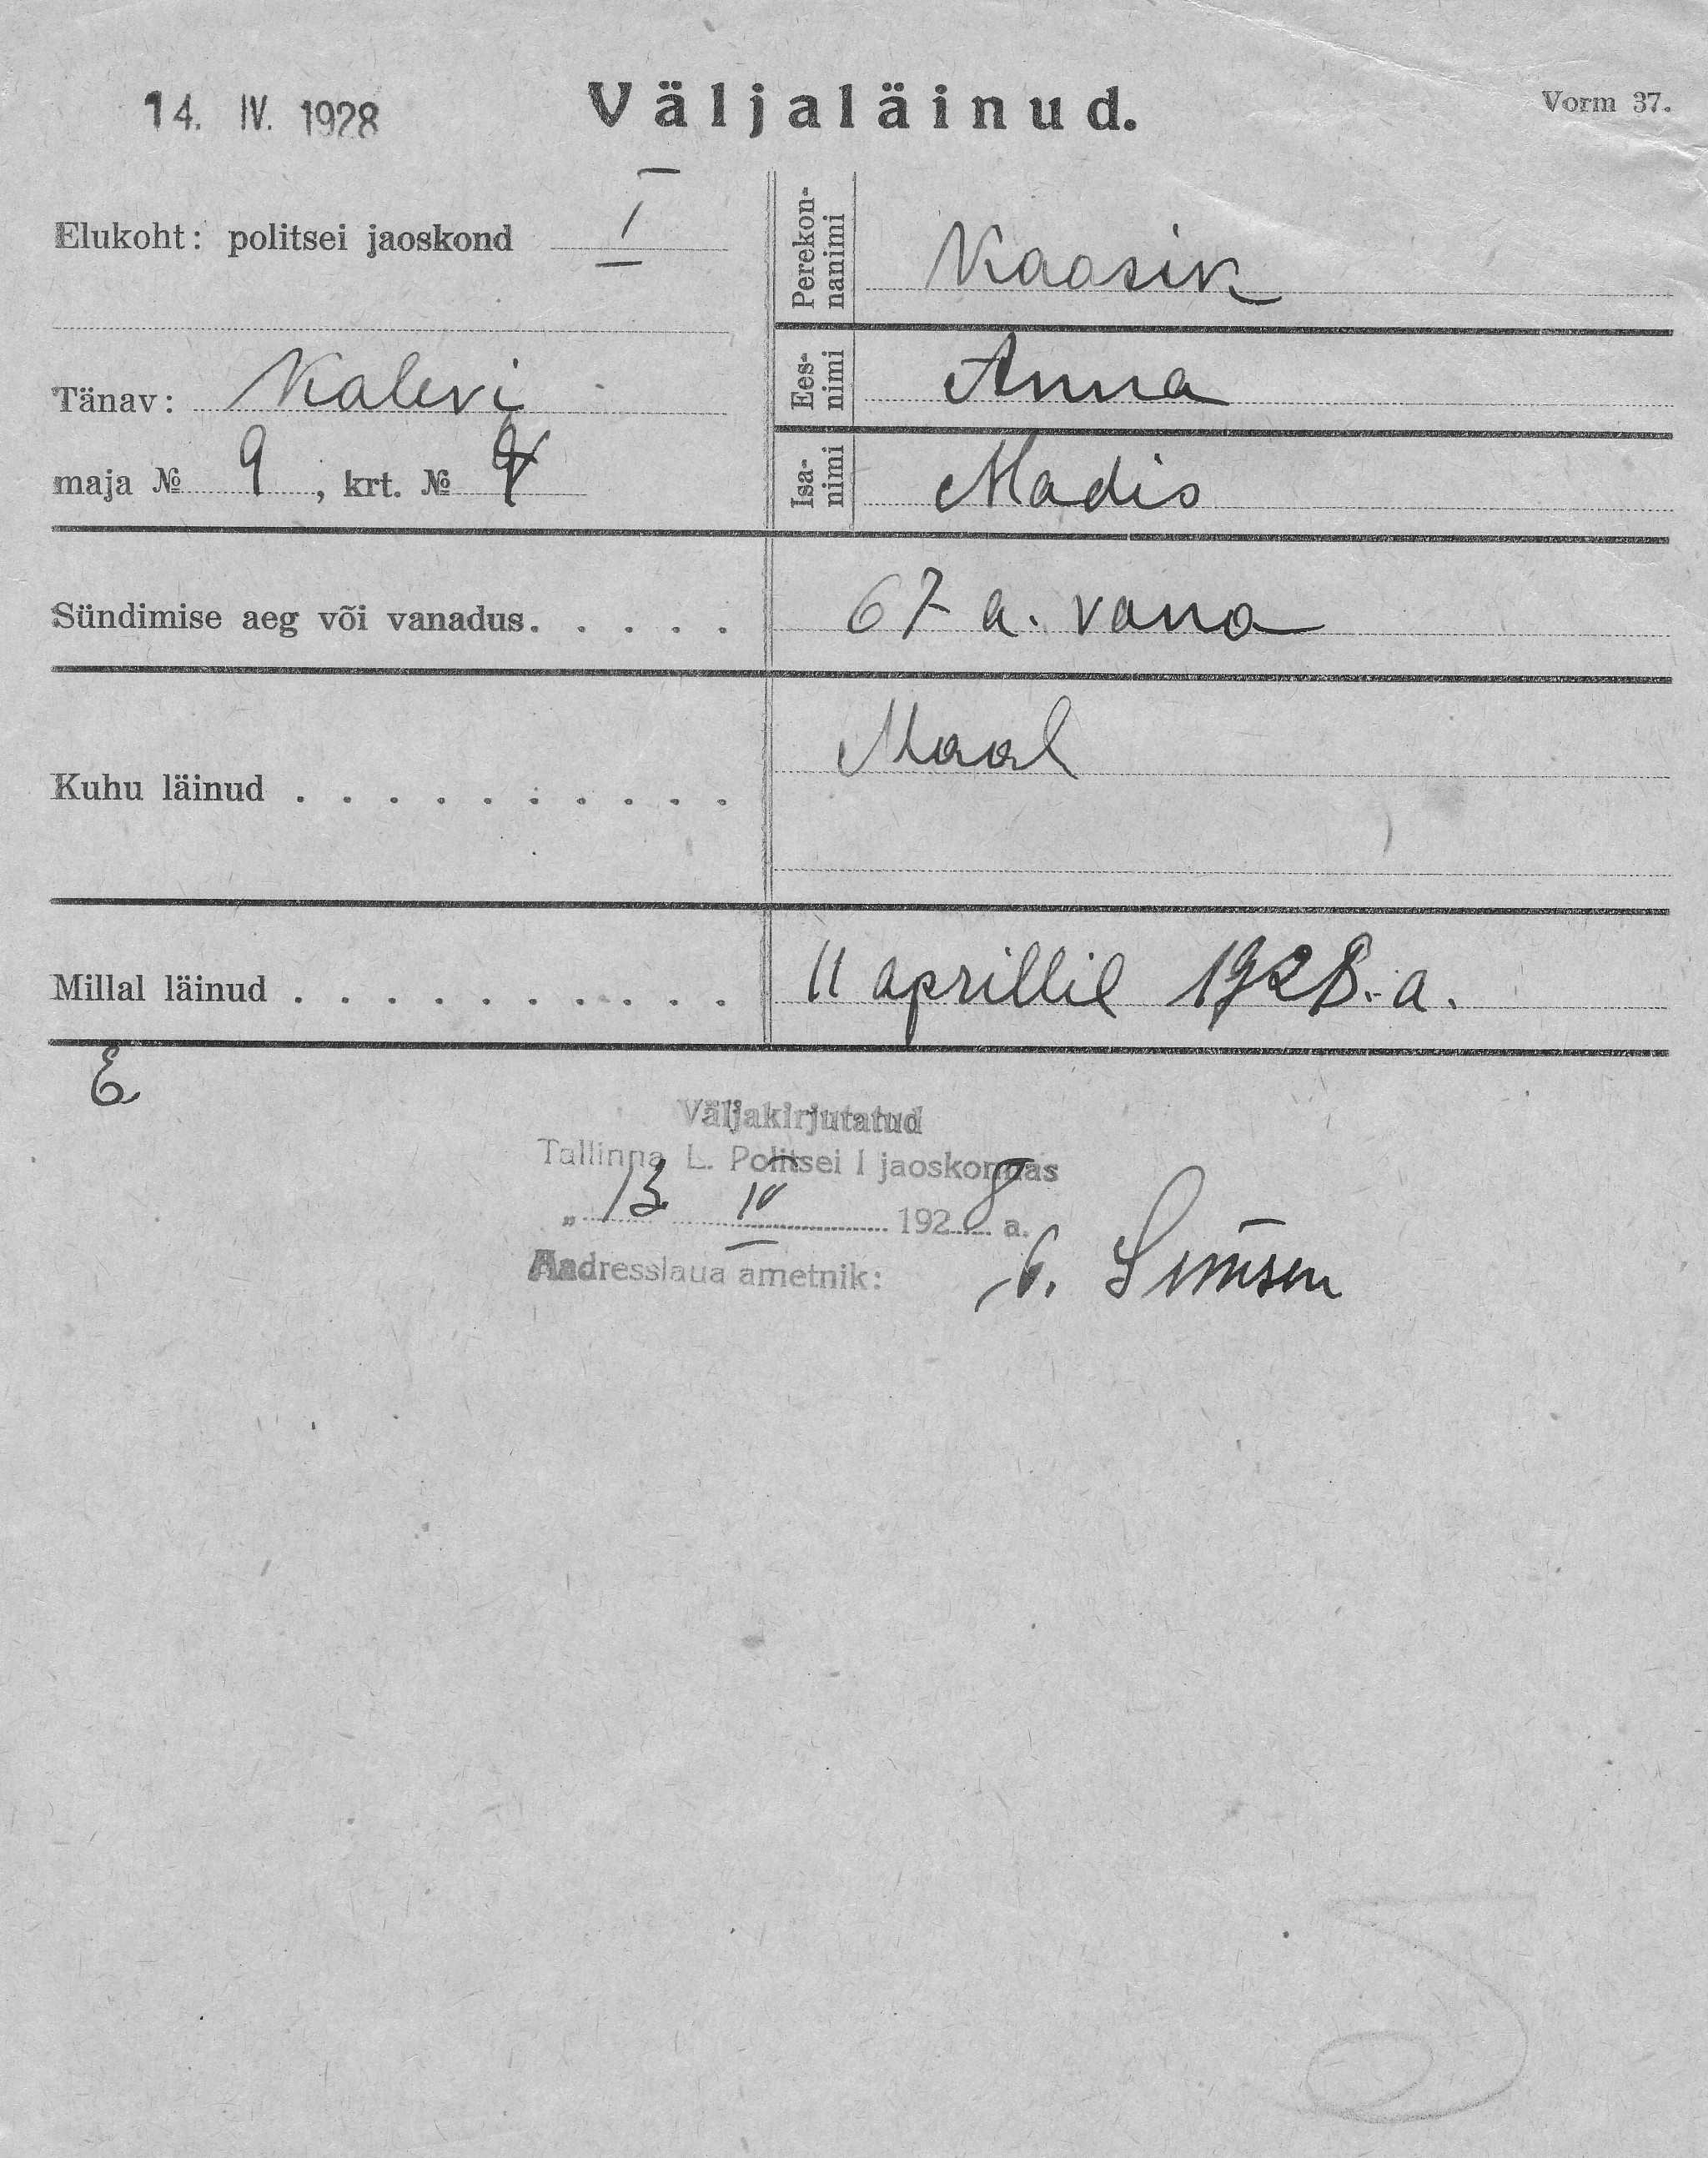 14. IV. 1928
Väljaläinud.
Vorm 37.
Elukoht: politsei jaoskond I
Tänav: Kalevi
maja № 9, krt. №
Perekon-
nanimi Kaasik
Ees-
nimi Anna
Isa-
nimi Madis
Sündimise aeg või vanadus. . . . . 67 a. vana
Kuhu läinud . . . . . . . . . . Maal
Millal läinud . . . . . . . . . . 11 aprillil 1928. a.
E
Väljakirjutatud
Tallinna L. Politsei I jaoskonnas
„ 13 IV 1928 a.
Aadresslaua ametnik: